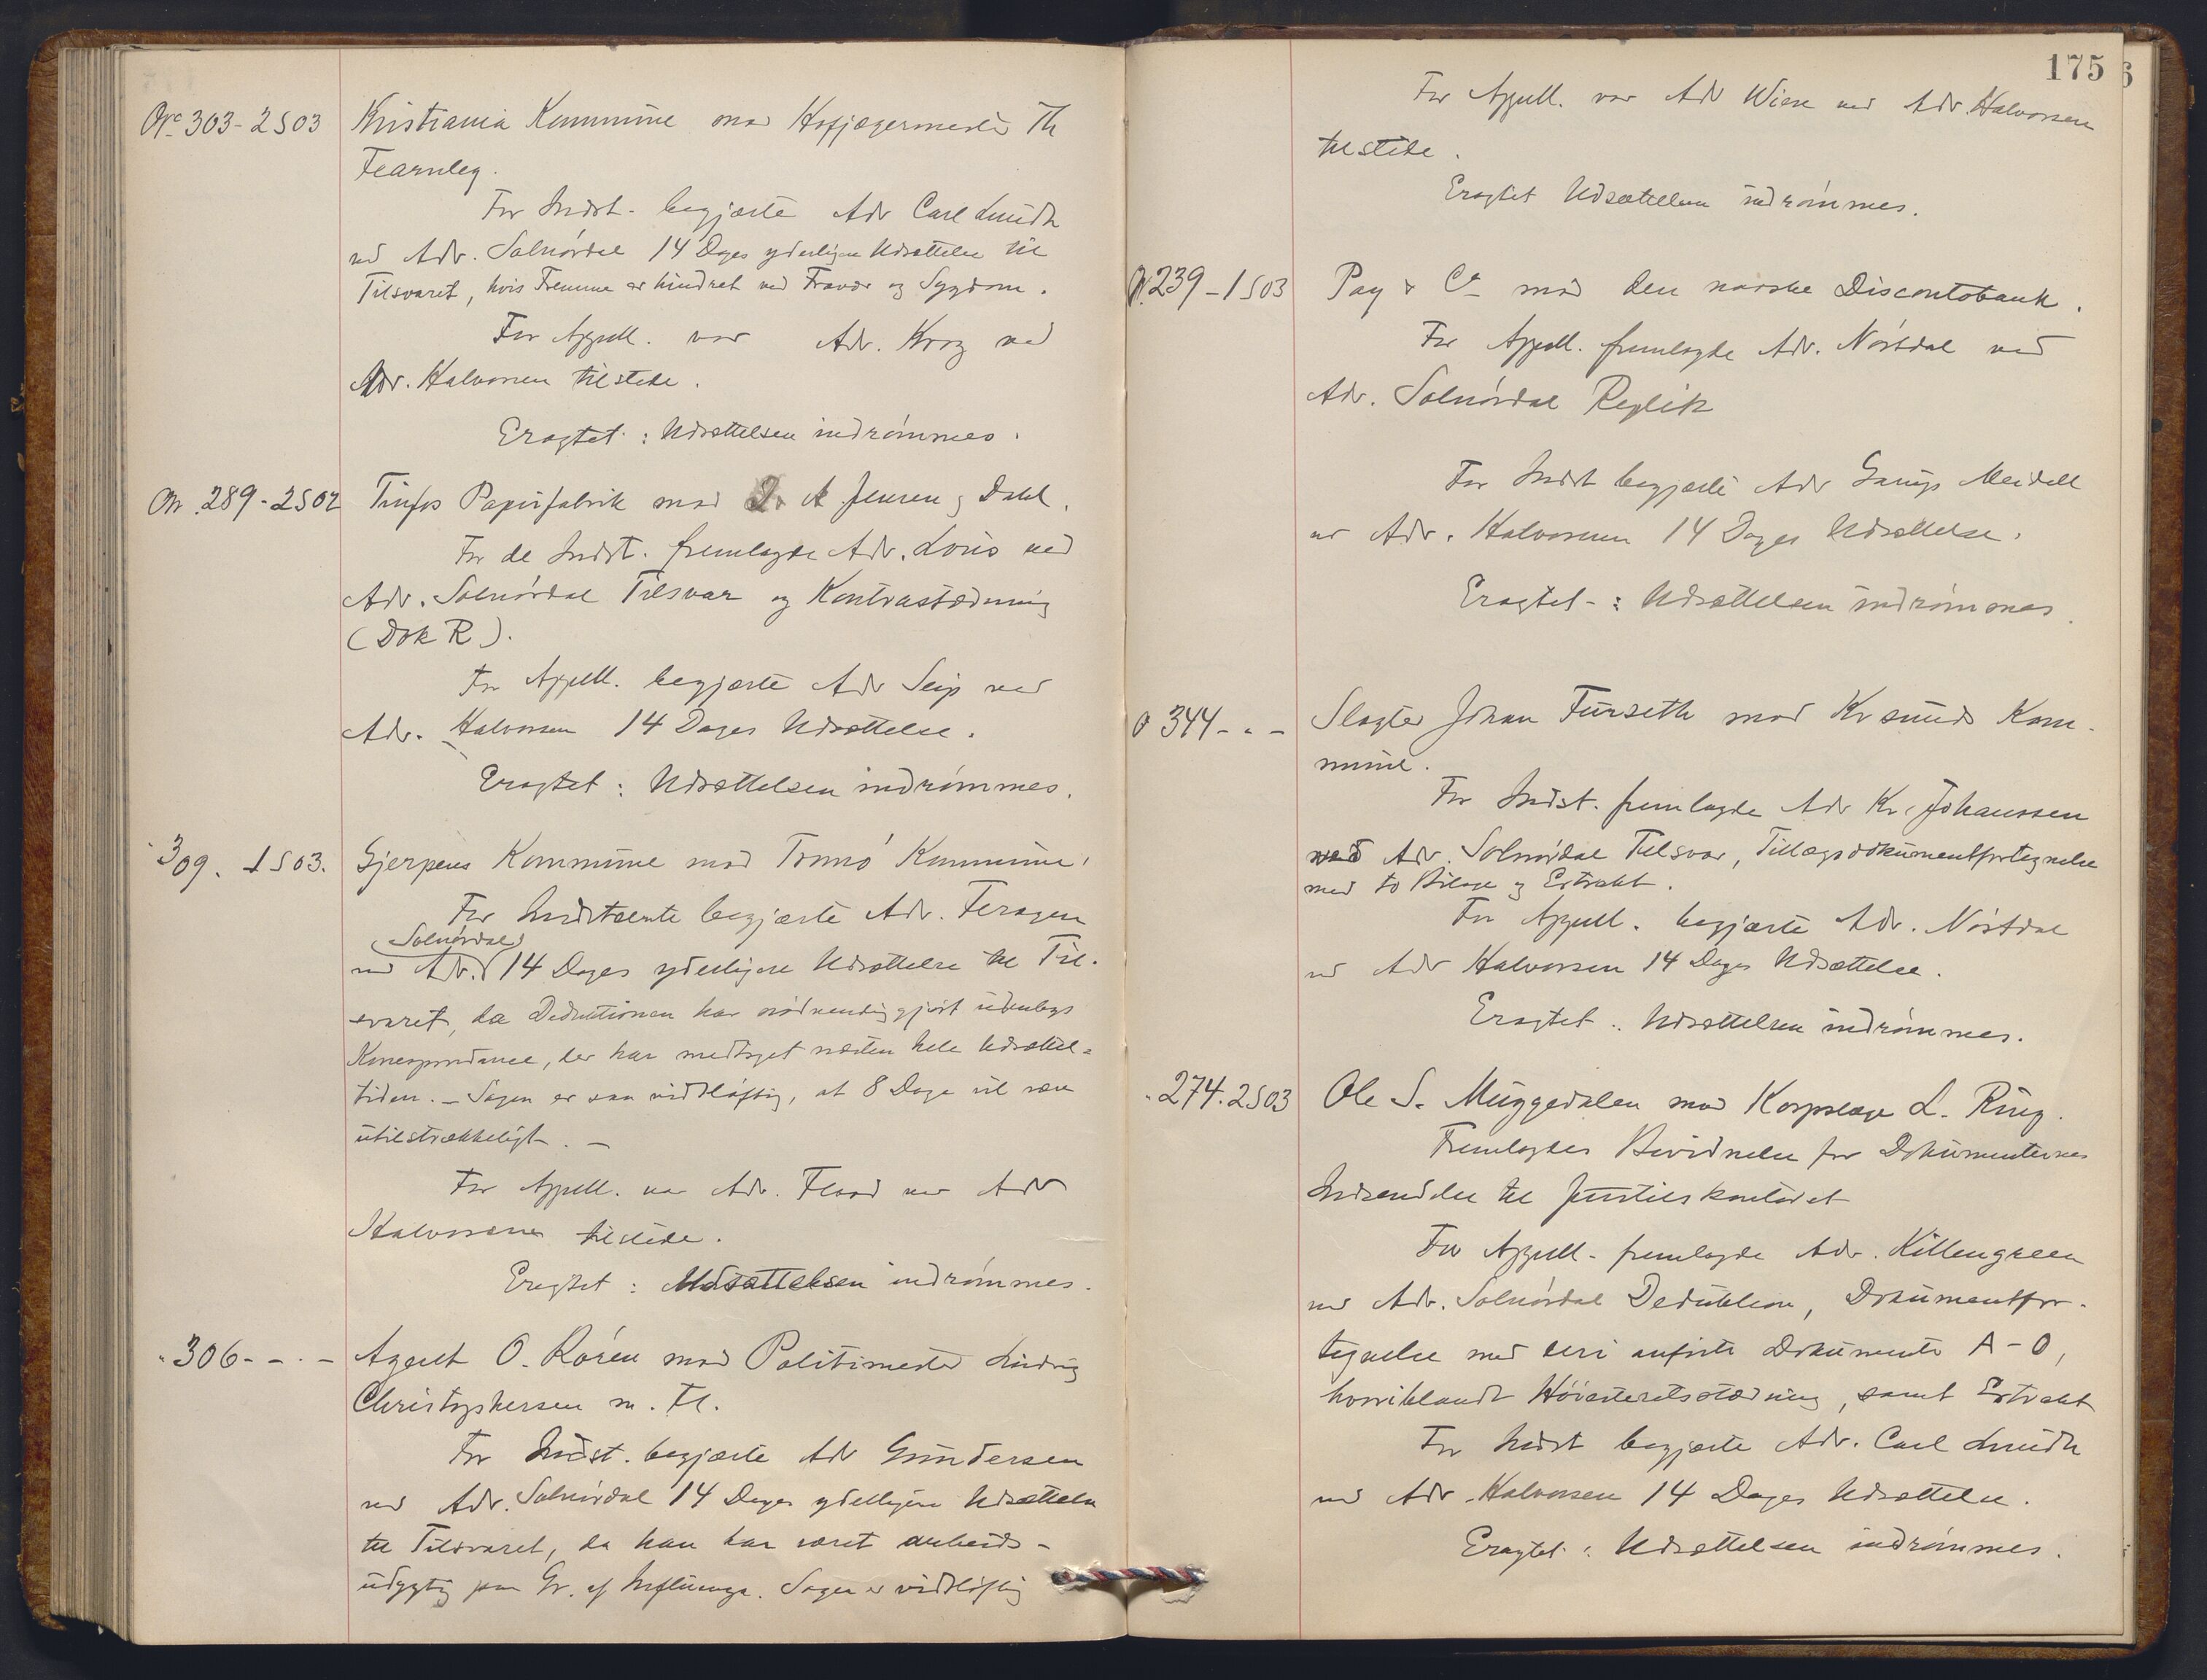 No 303-2S03 Kristiania Kommune mod Hofjægermester Th
Fearnley.
For Indst. begjærte Adv Carl Lundh
ved Adv. Solnørdal 14 Dages yderligere Udsættelse til
Tilsvaret, hvis Fremme er hindret ved Fravær og Sygdom.
For Appell. var Adv. Krog ved
Adv. Halvorsen tilstede.
Eragtet: Udsættelsen indrømmes.
No. 289-2S02 Tinfos Papirfabrik mod A Jensen & Dahl.
For de Indst. fremlagde Adv. Lous ved
Adv. Solnørdal Tilsvar og Kontrastævning
(Dok R).
For Appell. begjærte Adv Seip ved
Adv. Halvorsen 14 Dages Udsættelse.
Eragtet: Udsættelsen indrømmes.
309. 1S03. Gjerpens Kommune mod Tromø Kommune.
For Indstævnte begjærte Adv. Feragen
(Solnørdal)
ved Adv. 14 Dages yderligere Udsættelse til Til-
svaret, da Deduktionen har nødvendiggjort udenbys
Korrespondance, der har medtaget næsten hele Udsættel-
tiden. - Sagen er saa vidtløftig, at 8 Dage vil være
utilstrækkeligt. -
For Appell. var Adv. Flood ved Adv
Halvorsen tilstede.
Eragtet: Udsættelsen indrømmes.
" 306 - - . - Agent O. Rosén mod Politimester Ludvig
Christophersen m. fl.
For Indst. begjærte Adv Gundersen
ved Adv. Solnørdal 14 Dages yderligere Udsættelse
til Tilsvaret, da han har været arbeids-
udygtig paa Gr. af Influenza. Sagen er vidtløftig
175
For Appell. var Adv Wiese ved Adv. Halvorsen
tilstede.
Eragtet Udsættelsen indrømmes.
No. 239-1S03 Pay & Co mod den norske Discontobank.
For Appell. fremlagde Adv. Nørdal ved
Adv. Solnørdal Replik
For Indst begjærte Adv Meidell
ved Adv. Halvorsen 14 Dages Udsættelse.
Eragtet -: Udsættelsen indrømmes.
344 - " - Slagter Johan Furseth mod Krsunds Kom-
mune.
For Indst. fremlagde Adv Kr. Johanssen
ved Adv. Solnørdal Tilsvar, Tillægsdokumentfortegnelse
med to Bilage og Extrakt.
For Appell. begjærte Adv. Nørdal
ved Adv Halvorsen 14 Dages Udsættelse.
Eragtet: Udsættelsen indrømmes.
" 274. 2S03 Ole S. Muggedalen mod Korpslæge L. Ring.
Fremlagdes Bevidnelse for Dokumenternes
Indsendelse til Justitskontoret
For Appell. fremlagde Adv. Killengreen
ved Adv. Solnørdal Deduktion, Dokumentfor-
tegnelse med deri anførte Dokumente A-O,
hvoriblandt Høiesteretsstævning, samt Extrakt
For Indst begjærte Adv. Carl Lundh
ved Adv. Halvorsen 14 Dages Udsættelse.
Eragtet: Udsættelsen indrømmes.